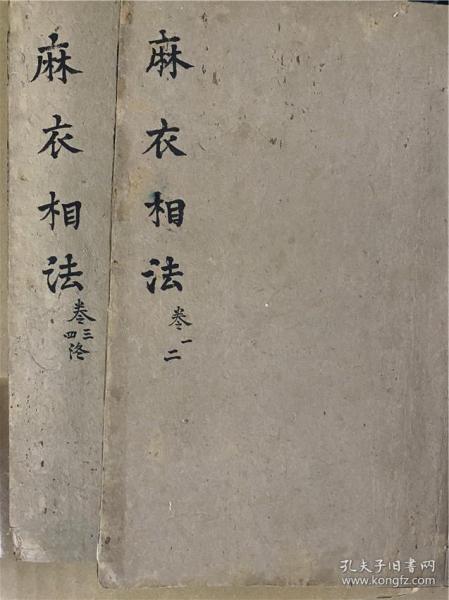 麻衣相法
卷一
二
麻衣相法
卷三
四
孔夫子旧书网
www.kongfz.com